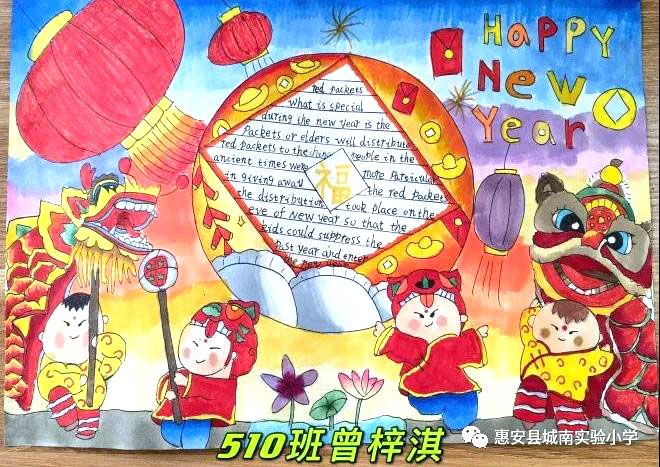 Happy
New
Year
red packets
what is special
during the new year is the
Packets or elders will distribute
red packets to the people in the
ancient times were more Particular
in giving away the red packets
福
the distribution took place on the
eve of New year so that the
kids could suppress the
Past year and enter
the new year
510班曾梓淇
惠安县城南实验小学